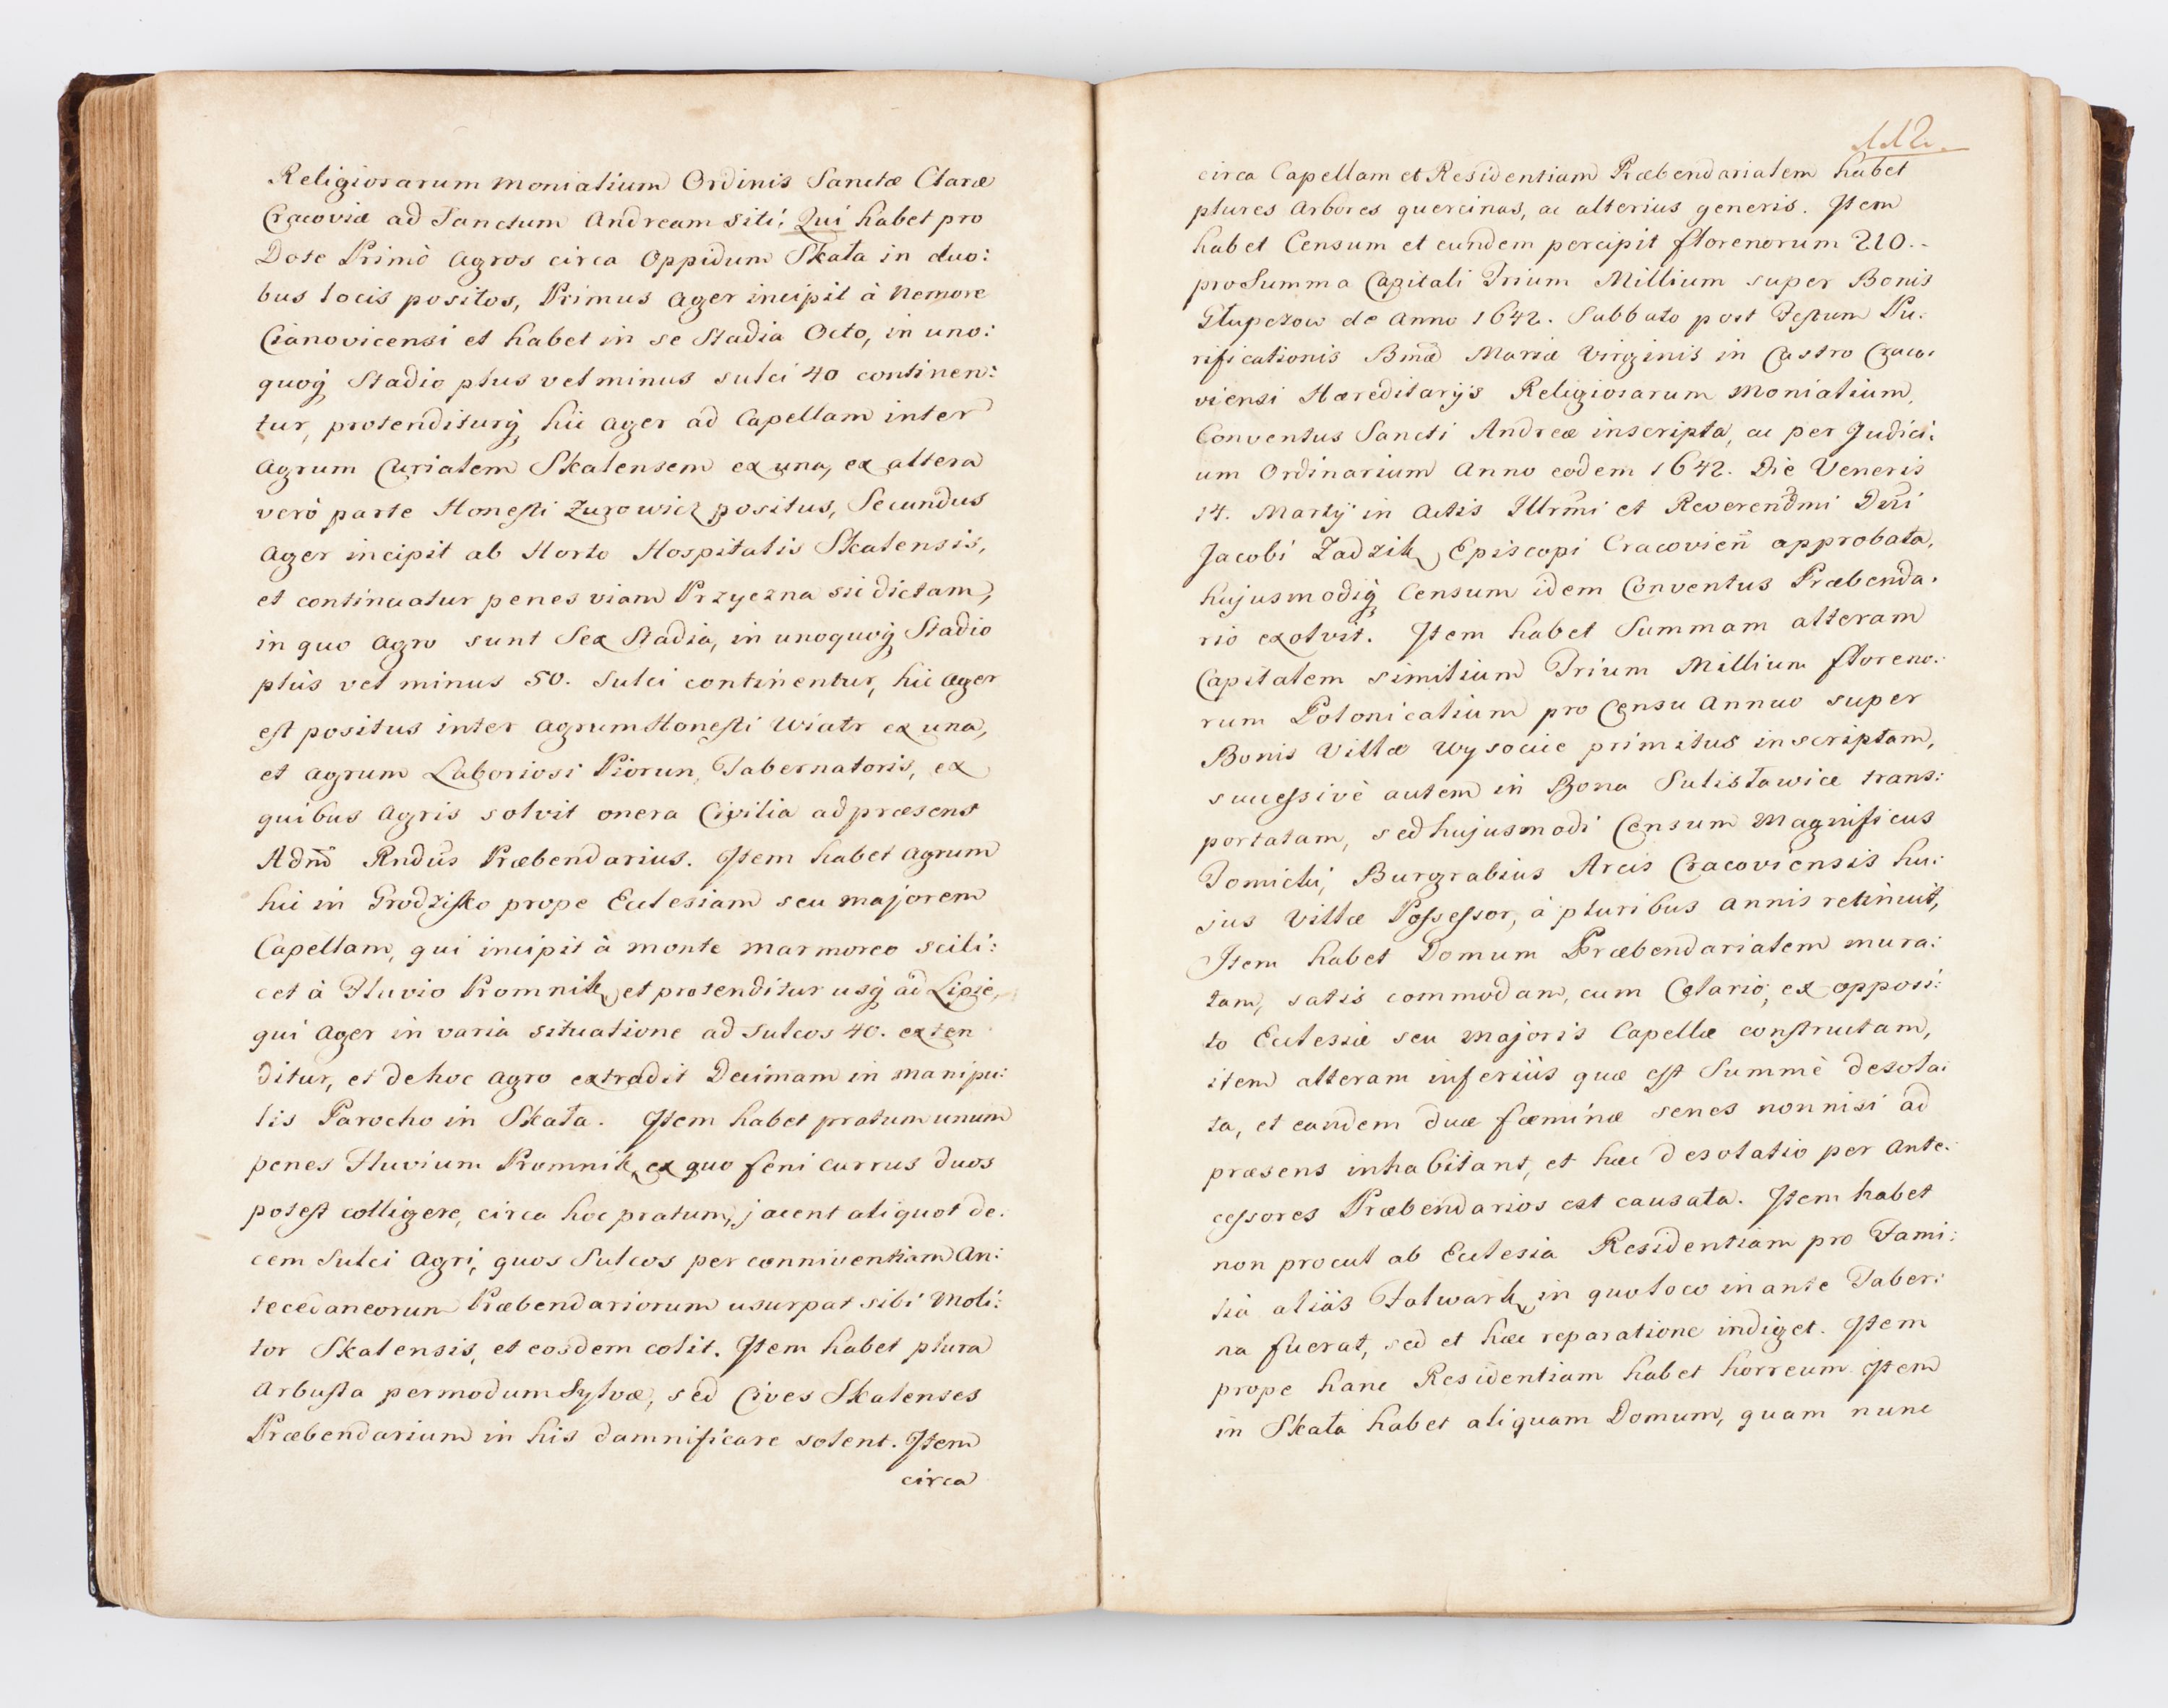 Religiosarum Monialium Ordinis Sanctæ Claræ
Cracoviæ ad Sanctum Andream siti; Qui habet pro
Dote Primò Agros circa Oppidum Skała in duo:
bus locis positos, Primus Ager incipit à Nemore
Cianovicensi et habet in se Stadia Octo, in uno:
quoq; Stadio plus vel minus sulci 40 continen:
tur, protenditurq; hic Ager ad Capellam inter
Agrum Curialem Skalensem ex una, ex altera
verò parte Honesti Zurowicz positus, Secundus
Ager incipit ab Horto Hospitalis Skalensis,
et continuatur penes viam Przyczna sic dictam,
in quo Agro sunt Sex Stadia, in unoquoq; Stadio
plùs vel minus 50. Sulci continentur, hic Ager
est positus inter Agrum Honesti Wiatr ex una,
et Agrum Laboriosi Piorun, Tabernatoris, ex
quibus Agris solvit onera Civilia ad præsens
Adm̃ Rndũs Præbendarius. Item habet Agrum
hic in Grodzisko prope Ecclesiam seu majorem
Capellam, qui incipit à monte marmoreo scili:
cet à Fluvio Promnik, et protenditur usq; ad Lipie,
qui Ager in varia situatione ad Sulcos 40. exten
ditur, et de hoc Agro extradit Decimam in Manipu:
lis Parocho in Skała. Item habet pratum unum
penes Fluvium Promnik, ex quo feni currus duos
potest colligere, circa hoc pratum, jacent aliquot de:
cem Sulci Agri, quos Sulcos per conniventiam An:
tecedaneorum Præbendariorum usurpat sibi Moli:
tor Skalensis, et eosdem colit. Item habet plura
Arbusta per modum Sylvæ, sed Cives Skalenses
Præbendarium in his damnificare solent. Item
circa
112.
circa Capellam et Residentiam Præbendarialem habet
plures Arbores quercinas, ac alterius generis. Item
habet Censum et eundem percipit florenorum 210.-
pro Summa Capitali Trium Millium super Bonis
Głupczow de Anno 1642. Sabbato post Festum Pu:
rificationis Bmæ Mariæ Virginis in Castro Craco:
viensi Hæreditarijs Religiosarum Monialium,
Conventus Sancti Andreæ inscripta, ac per Judici:
um Ordinarium Anno eodem 1642. Die Veneris
14. Martij in Actis Illrm̃i et Reverendm̃i Dñi
Jacobi Zadzik, Episcopi Cracovieñ approbata,
hujusmodiq; Censum idem Conventus Præbenda:
rio exolvit. Item habet Summam alteram
Capitalem similium Trium Millium floreno:
rum Polonicalium pro Censu Annuo super
Bonis Villæ Wysocice primitus inscriptam,
successivè autem in Bona Sulisławice trans:
portatam, sed hujusmodi Censum Magnificus
Tomicki, Burgrabius Arcis Cracoviensis hu:
jus Villæ Possessor, à pluribus annis retinuit,
Item habet Domum Præbendarialem mura:
tam, satis commodam, cum Celario, ex opposi:
to Ecclesiæ seu majoris Capellæ constructam,
item alteram inferiùs quæ est Summè desola:
ta, et eandem duæ fœminæ senes nonnisi ad
præsens inhabitant, et hæc desolatio per Ante:
cessores Præbendarios est causata. Item habet
non procul ab Ecclesia Residentiam pro Fami:
lia aliàs Falwark, in quo loco in ante Taber:
na fuerat, sed et hæc reparatione indiget. Item
prope hanc Residentiam habet horreum. Item
in Skała habet aliquam Domum, quam nunc